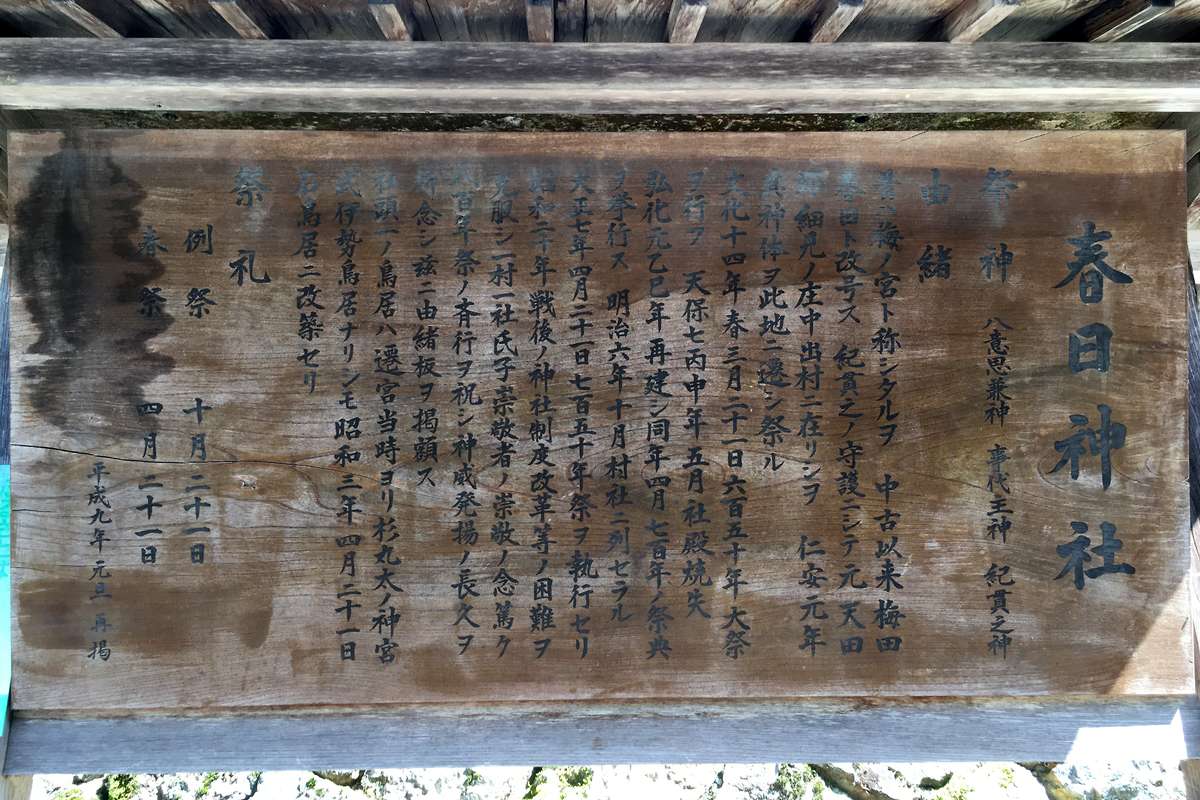 春日神社
祭神 八意思兼神 事代主神 紀貫之神
由緒
昔梅ノ宮ト称シタルヲ 中古以来梅田
春田ト改号ス 紀貫之ノ守護ニシテ元天田
郡細見ノ庄中出村ニ在リシヲ 仁安元年
其神体ヲ此地ニ遷シ祭ル
文化十四年春三月二十一日六百五十年大祭
ヲ行フ 天保七丙申年五月社殿焼失
弘化元乙巳年再建シ同年四月七百年ノ祭典
ヲ挙行ス 明治六年十月村社ニ列セラル
大正七年四月二十一日七百五十年祭ヲ執行セリ
昭和二十年戦後ノ神社制度改革等ノ困難ヲ
克服シ一村一社氏子崇敬者ノ崇敬ノ念篤ク
八百年祭ノ斉行ヲ祝シ神威発揚ノ長久ヲ
祈念シ茲ニ由緒板ヲ掲額ス
社頭一ノ鳥居ハ遷宮当時ヨリ杉丸太ノ神宮
式伊勢鳥居ナリシモ昭和三年四月二十一日
石鳥居ニ改築セリ
祭礼
例祭 十月二十一日
春祭 四月二十一日
平成九年元旦再掲